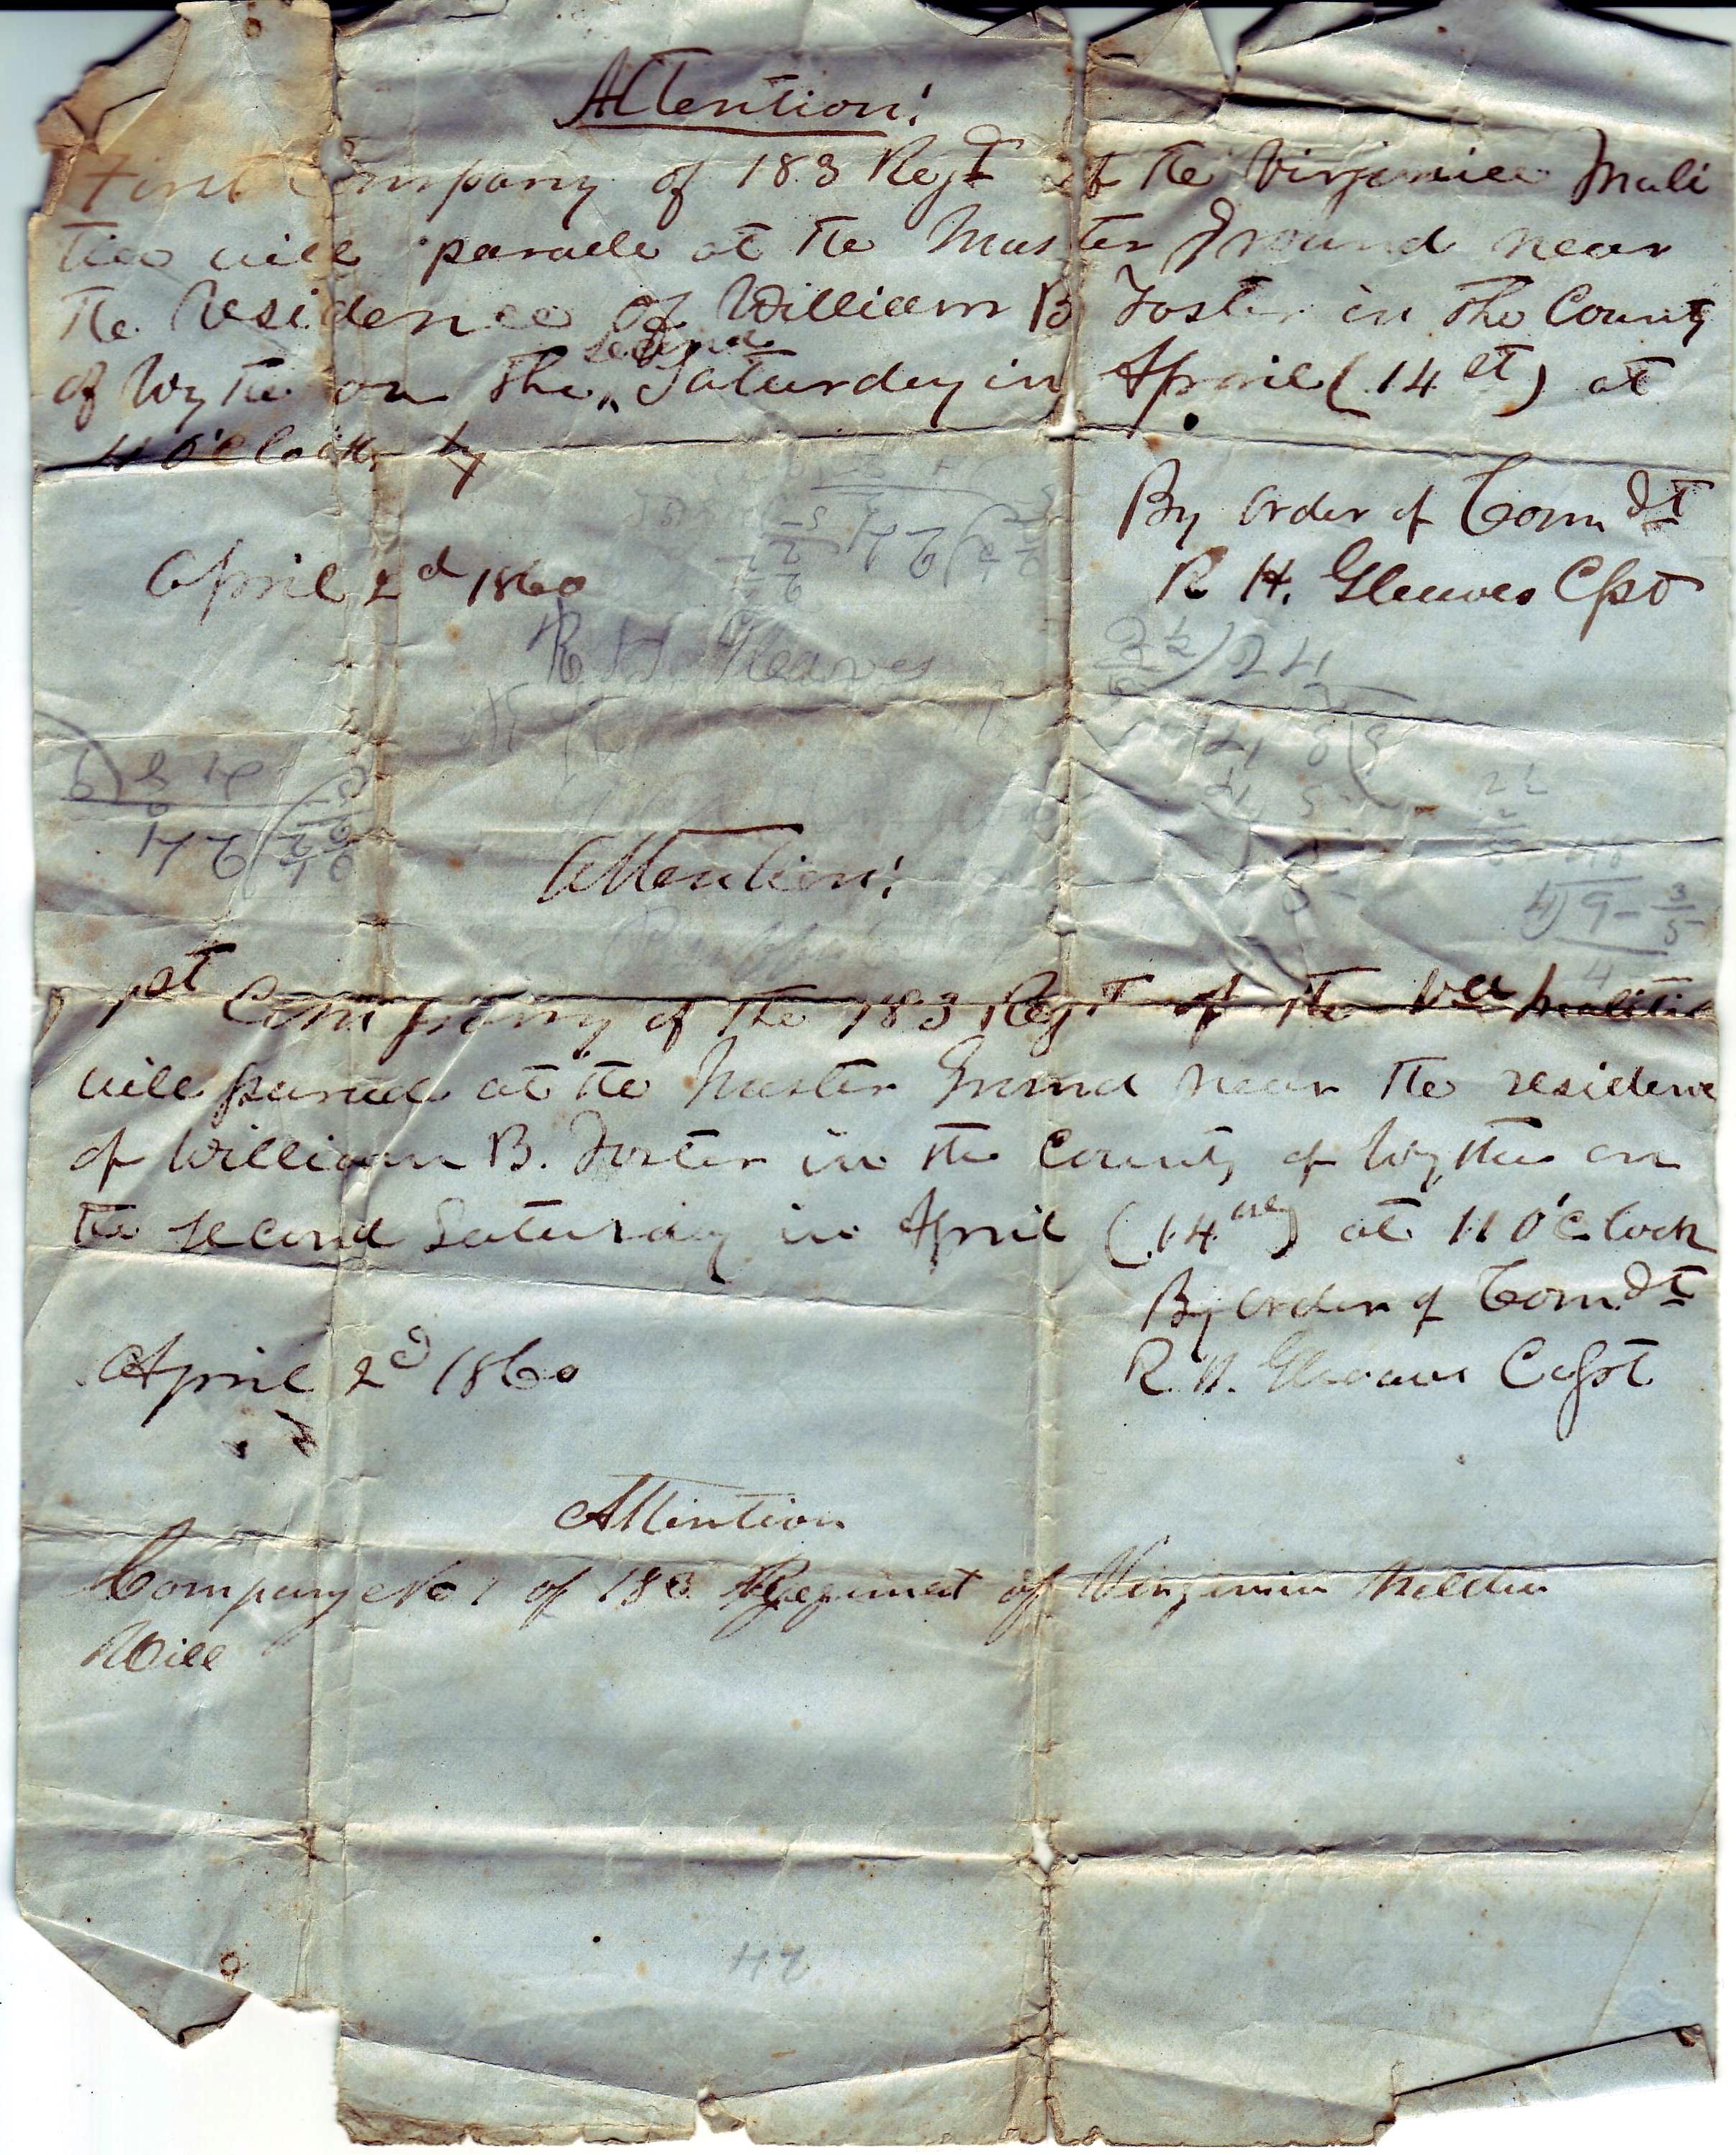 Attention!
First Company of 183 Regt of the Virginia Mali
tia will parade at the Muster Ground near
the Residence of William B Foster in the County
second
of Wythe on the ^ Saturday in April (14 st) at
11 O'Clock
By order of Comdt
April 2d 1860
R H. Gleaves Capt
R H Gleaves
2 1/2 ) 24
Attention!
4) 9 - 3/5
4
1st Company of the 183 Regt of the Va Malitia
will parade at the Muster Ground near the residence
of William B. Foster in the County of Wythe on
the second Saturday in April (14) at 11 O'Clock
By order of Comdt
April 2d 1860
R. H. Gleaves Capt
Attention
Company No 1 of 183 Regiment of Virginia Militia
Will